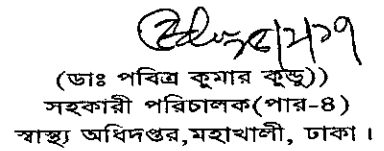 (ডাঃ পবিত্র কুমার কুন্ডু))
সহকারী পরিচালক(পার-৪)
স্বাস্থ্য অধিদপ্তর,মহাখালী, ঢাকা।